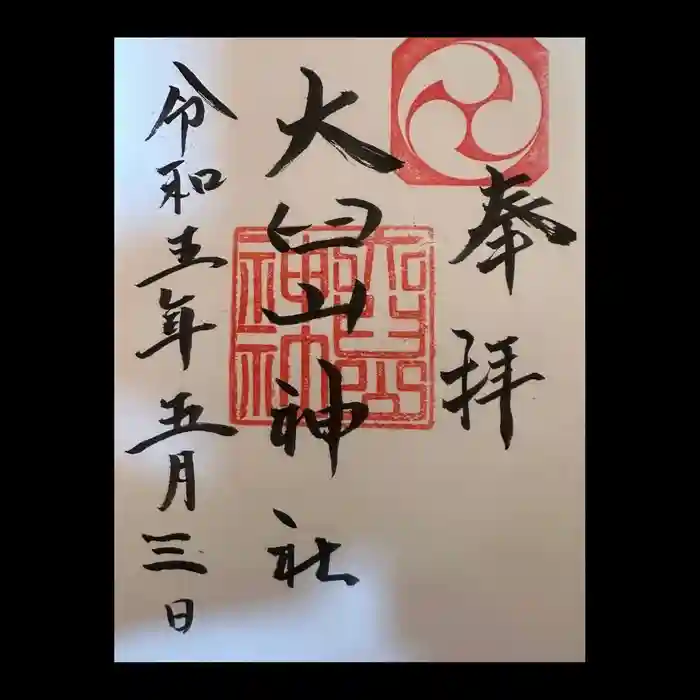 奉拝
大臼山神社
令和五年五月三日